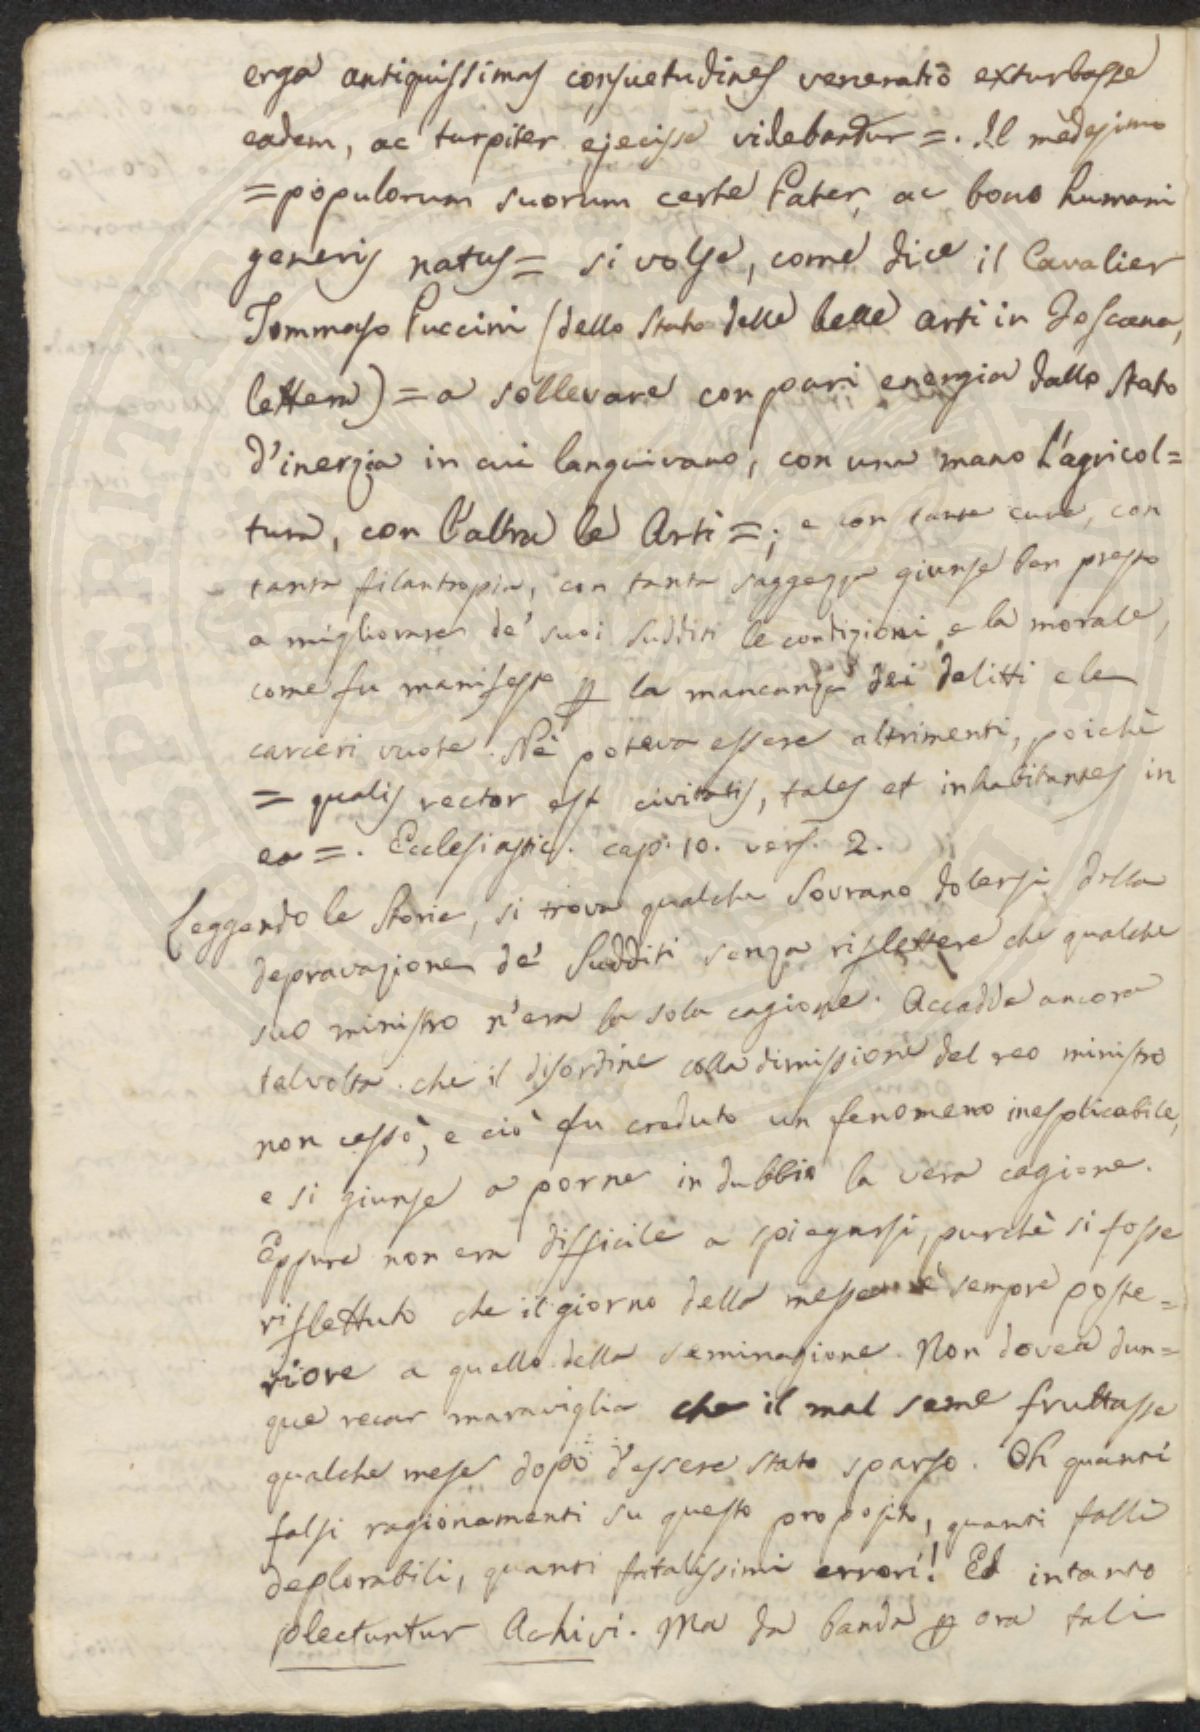 erga antiquissimas consuetudines veneratiō exturbasse
eadem, ac turpiter ejecisse videbantur =. Il medesimo
= populorum suorum certe Pater, ac bono humani
generis natus = si volse, come dice il Cavalier
Tommaso Puccini (dello stato delle belle arti in Toscana,
lettera) = a sollevare con pari energia dallo stato
d'inerzia in cui languivano, con una mano l'agricol=
tura, con l'altra le Arti =; e con tante cure, con
tanta filantropia, con tanta saggezza giunse ben presto
a migliorare de' suoi sudditi le condizioni e la morale,
come fu manifesto p la mancanza dei delitti e le
carceri vuote. Nè poteva essere altrimenti, poichè
= qualis rector est civitatis, tales et inhabitantes in
ea =. Ecclesiastic. cap. 10. vers. 2.
Leggendo le Storie, si trova qualche Sovrano dolersi della
depravazione de' Sudditi senza riflettere che qualche
suo ministro n'era la sola cagione. Accadde ancora
talvolta che il disordine colla dimissione del reo ministro
non cessò, e ciò fu creduto un fenomeno inesplicabile,
e si giunse a porne in dubbio la vera cagione.
Eppure non era difficile a spiegarsi, purchè si fosse
riflettuto che il giorno della messe è sempre poste=
riore a quello della seminagione. Non dovea dun=
que recar maraviglia che il mal seme fruttasse
qualche mese dopo d'essere stato sparso. Oh quanti
falsi ragionamenti su questo proposito, quanti falli
deplorabili, quanti fatalissimi errori! Ed intanto
plectuntur Achivi. Ma da banda p ora tali